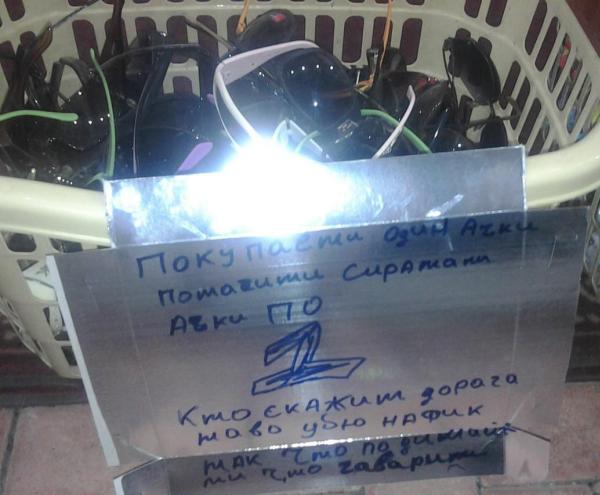 Покупаети один Ачки
потачити сиражати
Ачки ПО
1
Кто скажит дорага
таво убю нафик
так что падимайти
ми что гаварити